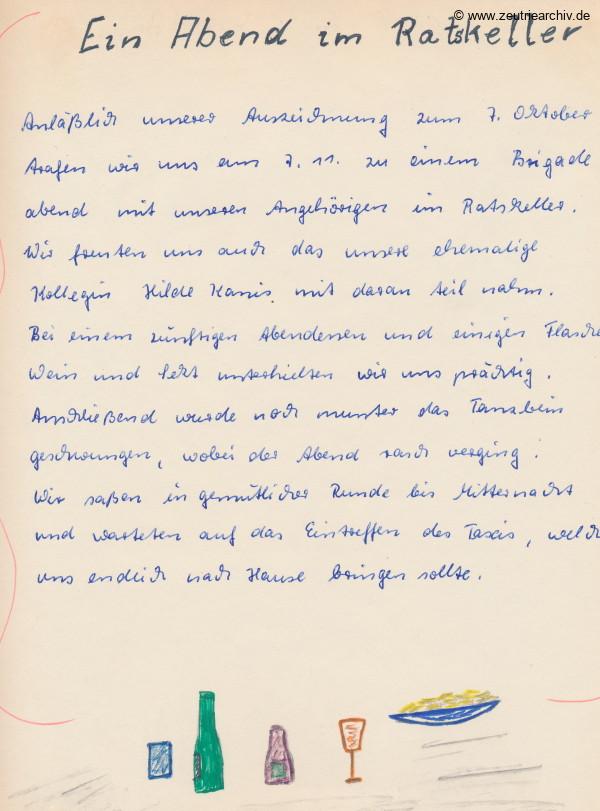 © www.zeutriearchiv.de
Ein Abend im Ratskeller
Anläßlich unserer Auszeichnung zum 7. Oktober
trafen wir uns am 7. 11. zu einem Brigade
abend mit unseren Angehörigen im Ratskeller.
Wir freuten uns auch das unsere ehemalige
Kollegin Hilde Kanis mit daran teil nahm.
Bei einem zünftigen Abendessen und einigen Flasche
Wein und Sekt unterhielten wir uns prächtig.
Anschließend wurde noch munter das Tanzbein
geschwungen, wobei der Abend rasch verging.
Wir saßen in gemütlicher Runde bis Mitternacht
und warteten auf das Eintreffen des Taxis, welch
uns endlich nach Hause bringen sollte.